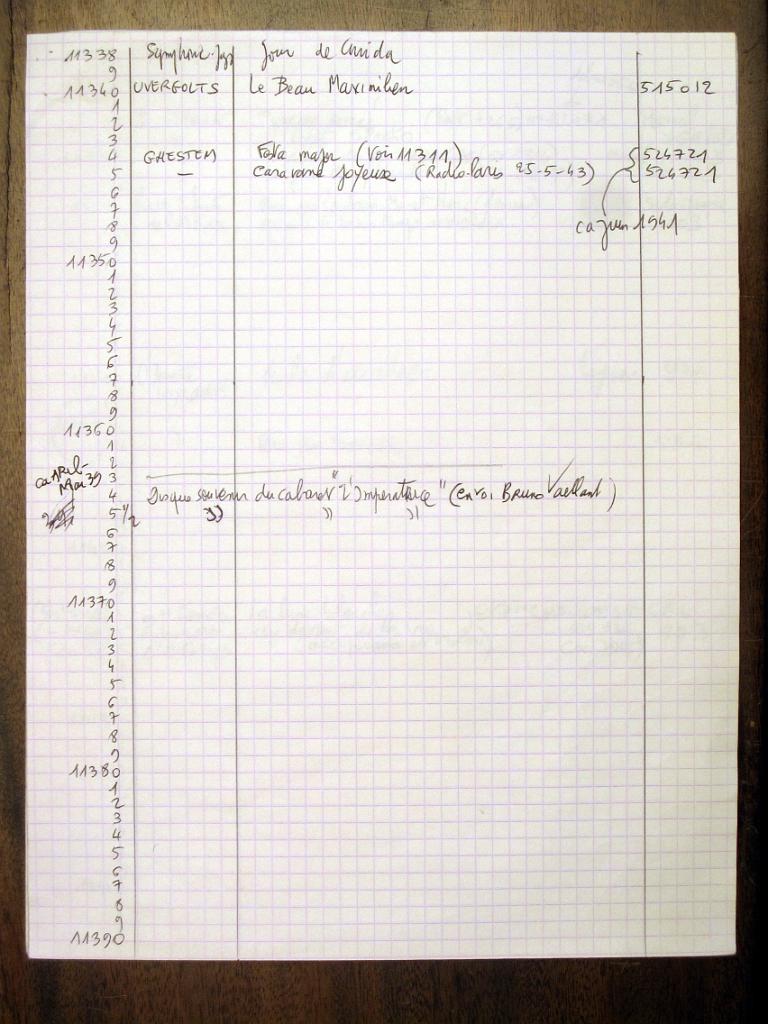 11338 Symphonic-Jazz Jour de Cnida
9
11340 UVERGOLTS Le Beau Maximilien 515012
1
2
3
4 GHESTEM Fava major (Voir 11311) { 524721
5 — Caravane joyeuse (Radio-Paris 25-5-43) { 524721
6
7
8 ca juin 1941
9
11350
1
2
3
4
5
6
7
8
9
11360
1
2
ca Avril-
Mai 39 3
4 Disque souvenir du cabaret "L'Impératrice" (envoi Bruno Vaillant)
5 1/2 )) )) ))
6
7
8
9
11370
1
2
3
4
5
6
7
8
9
11380
1
2
3
4
5
6
7
8
9
11390